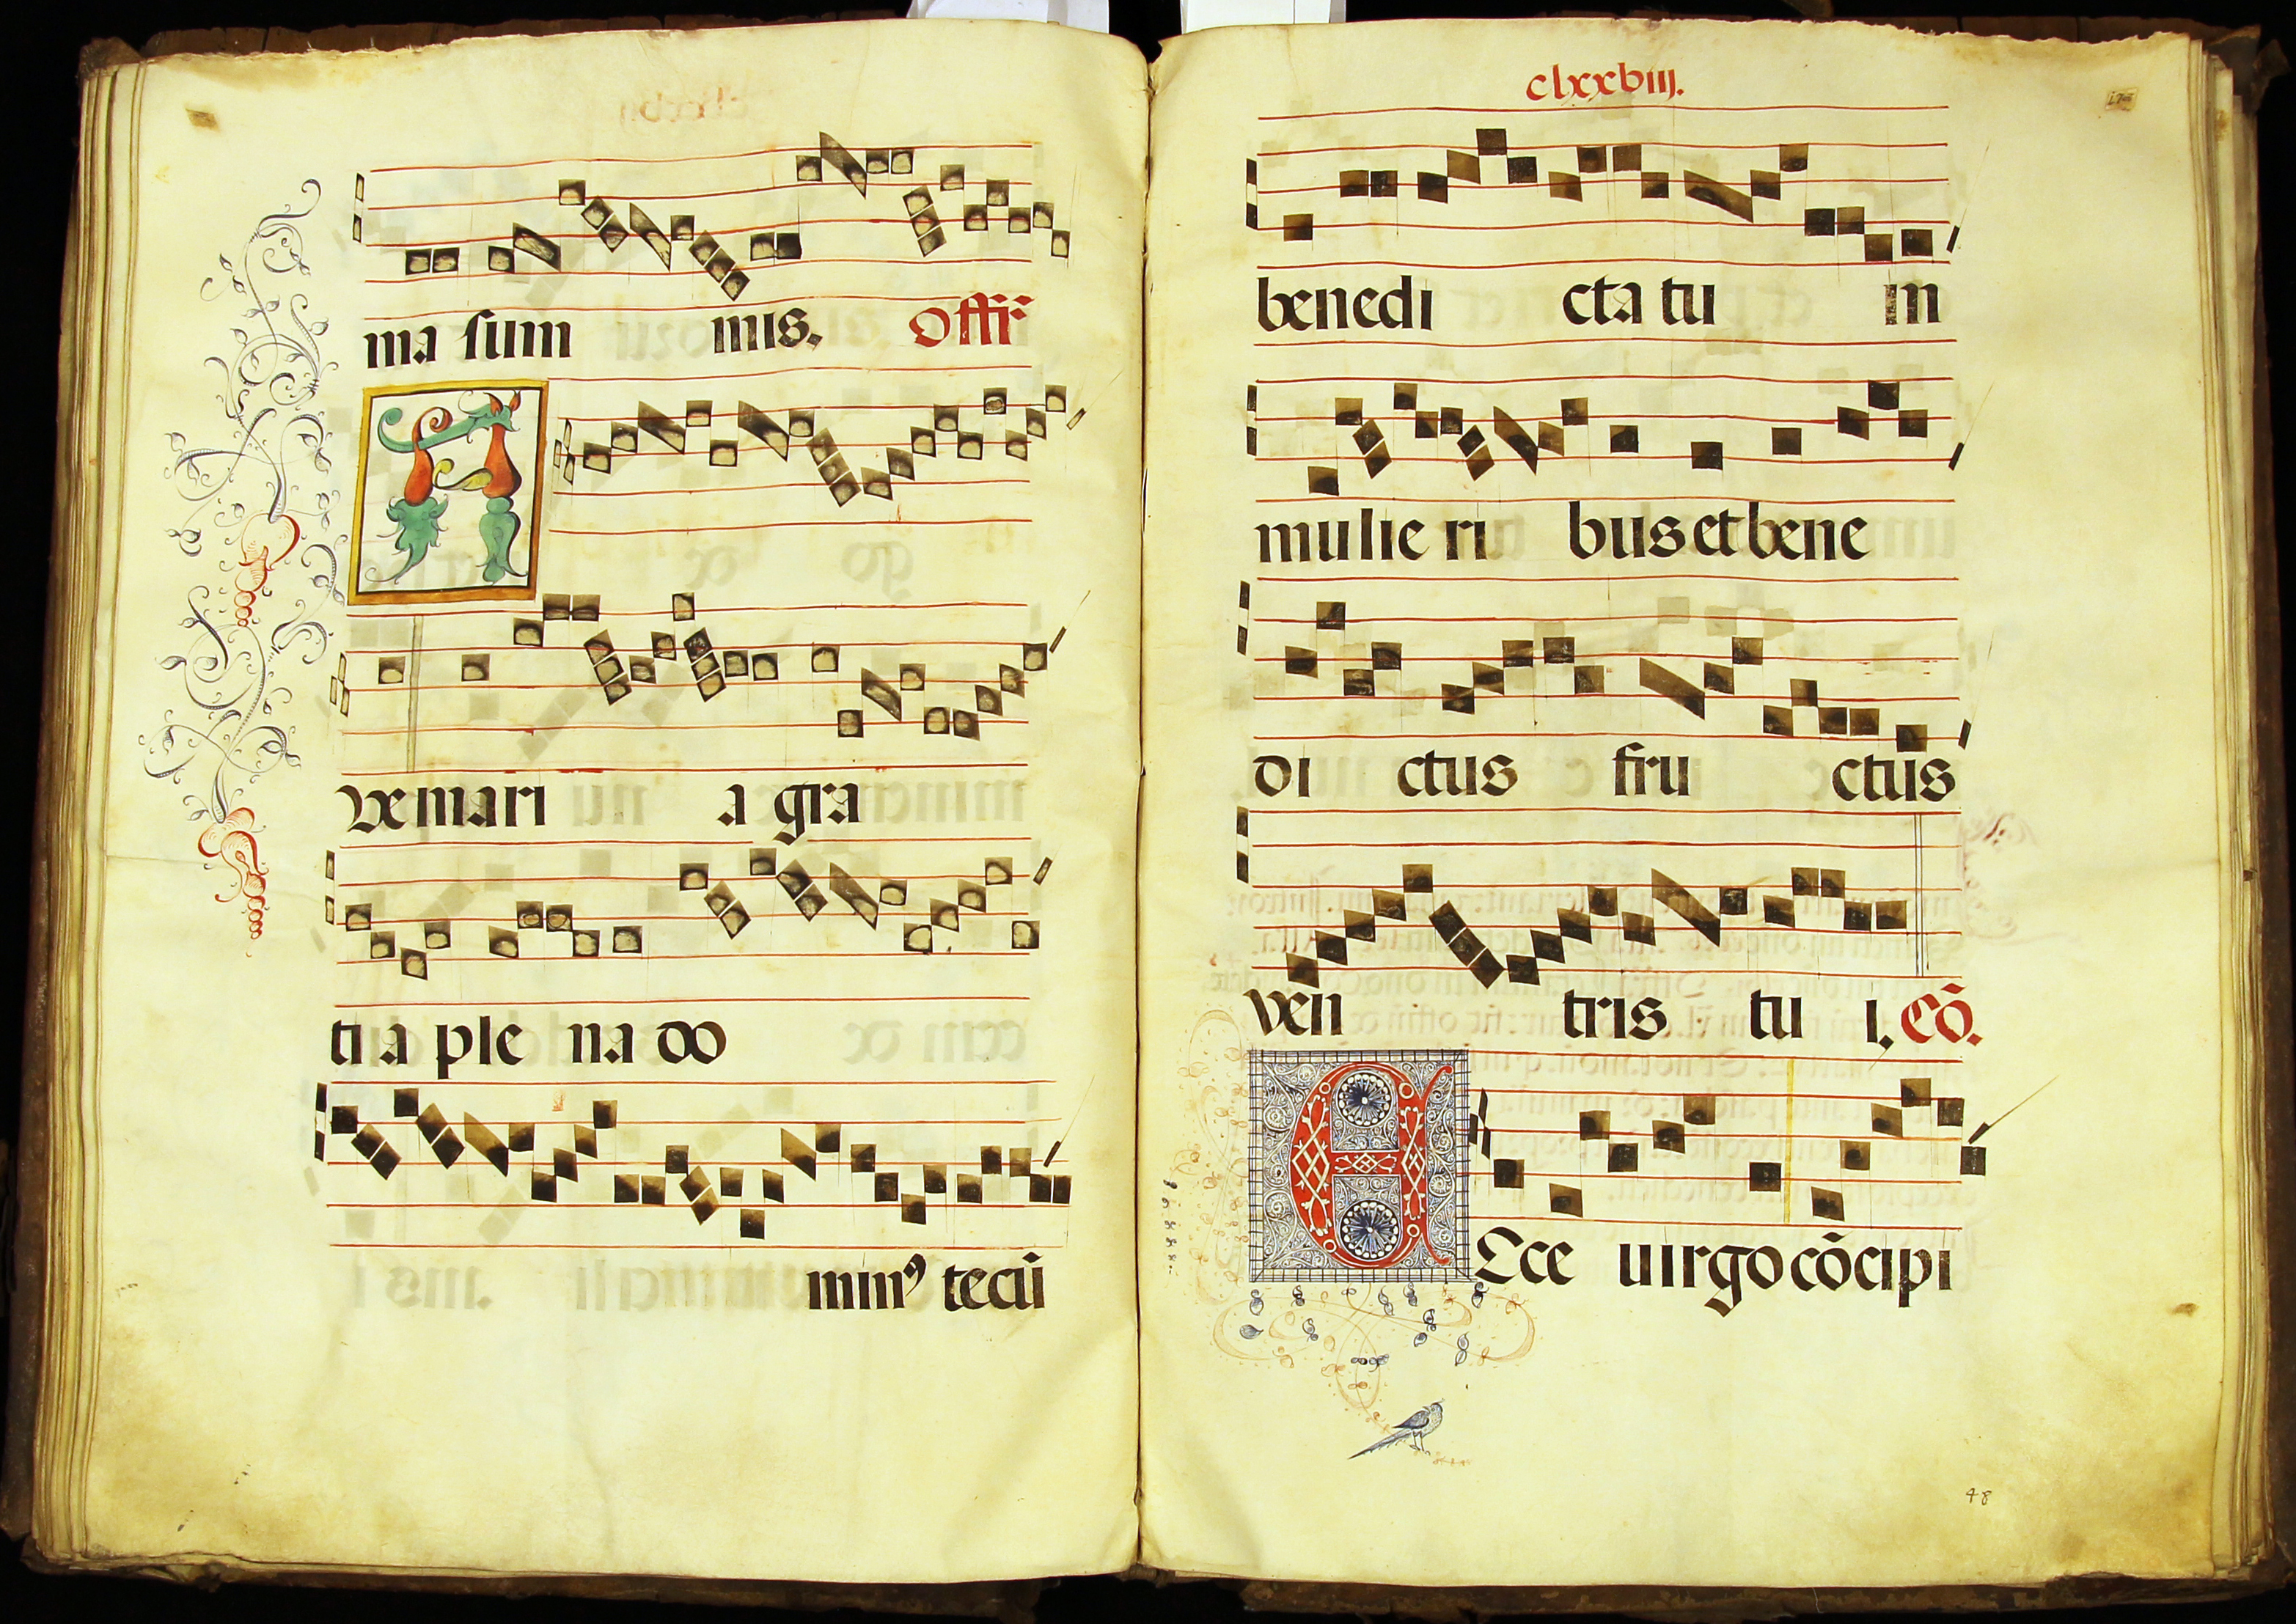 ma sum mis. Offr̄
A
Ve mari a gra
ti a ple na do
minꝰ tecū
clxxviij.
benedi cta tu in
mulie ri bus et bene
di ctus fru ctus
ven tris tu i. Cō.
E
Cce uirgo cōcipi
48